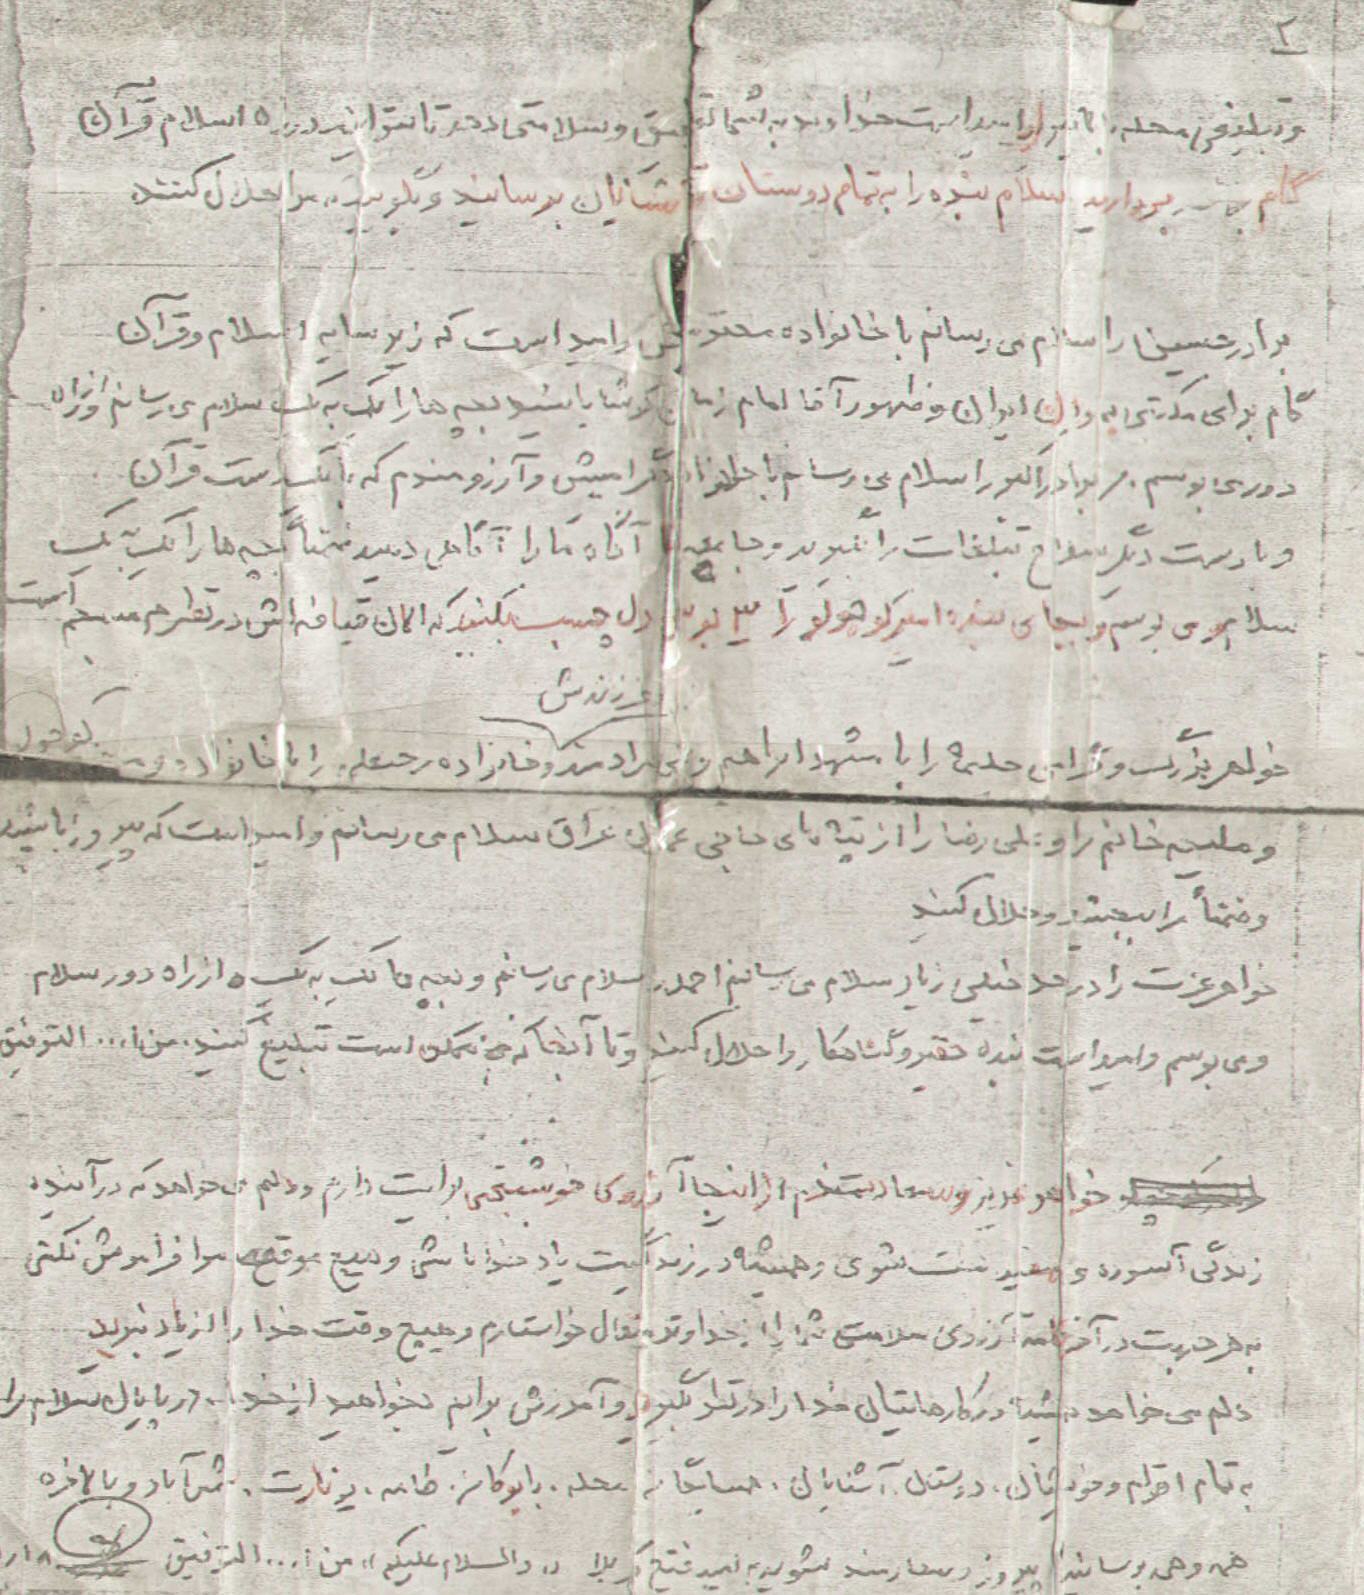 ۲
امید است خداوند به شما توفیق و سلامتی دهد تا بتوانید در راه اسلام قرآن
گام بردارید سلام بنده را به تمام دوستان آشنایان برسانید و بگویید مرا حلال کنند
برادر حسین را سلام می رسانم با خانواده محترمش امید است که زیر سایه اسلام و قرآن
گام برای ایران و ظهور آقا امام زمان کوشا باشید بچه ها را یک به یک سلام می رسانم از راه
دور می بوسم برادر اکبر را سلام می رسانم با خانواده گرامیش و آرزومندم که با یک دست قرآن
و با دست دیگر سلاح تبلیغات را بگیرید و آگاه ما را آگاهی دهید ضمناً بچه ها را یک به یک
سلام می بوسم و بجای بنده امیر کوهولو را ۳ بوس دل چسب بکنید که الان قیافه اش در نظرم مجسم است
فرزندش
خواهر بزرگ و گرامی حلیمه را با مشهد ابراهیم و خانواده را با خانواده و کوچول
و ملیحه خانم را و علی رضا را از تپه های عراق سلام می رسانم و امید است که پیروز باشید
و ضمناً مرا ببخشید و حلال کنید
خواهر عزت را در حد خیلی زیاد سلام می رسانم احمد سلام می رسانم و بچه ها یک به یک از راه دور سلام
و می بوسم و امید است بنده حقیر و گناهکار را حلال کنید و تا آنجا که ممکن است تبلیغ کنید. من ا... التوفیق
خواهر عزیز و سعادتمندم از اینجا آرزوی خوشبختی برایت دارم و دلم می خواهد که در آینده
زندگی آسوده و نصیبت شوی و همیشه در زندگیت یاد خدا باشی و هیچ موقع مرا فراموش نکنی
به هر جهت در آخر نامه آرزوی سلامتی شما را از خداوند متعال خواستارم و هیچ وقت خدا را از یاد نبرید
دلم می خواهد همیشه در کارهایتان خدا را در نظر بگیرید و آمرزش برایم بخواهید از خدا. در پایان سلام مرا
به تمام اقوام و خویشان، دوستان، آشنایان، همسایگان محله، شمس آباد و بالاخره
همه و همه برسانید پیروز و سعادتمند شوید به امید فتح کربلا ,, والسلام علیکم ,, من ا... التوفیق